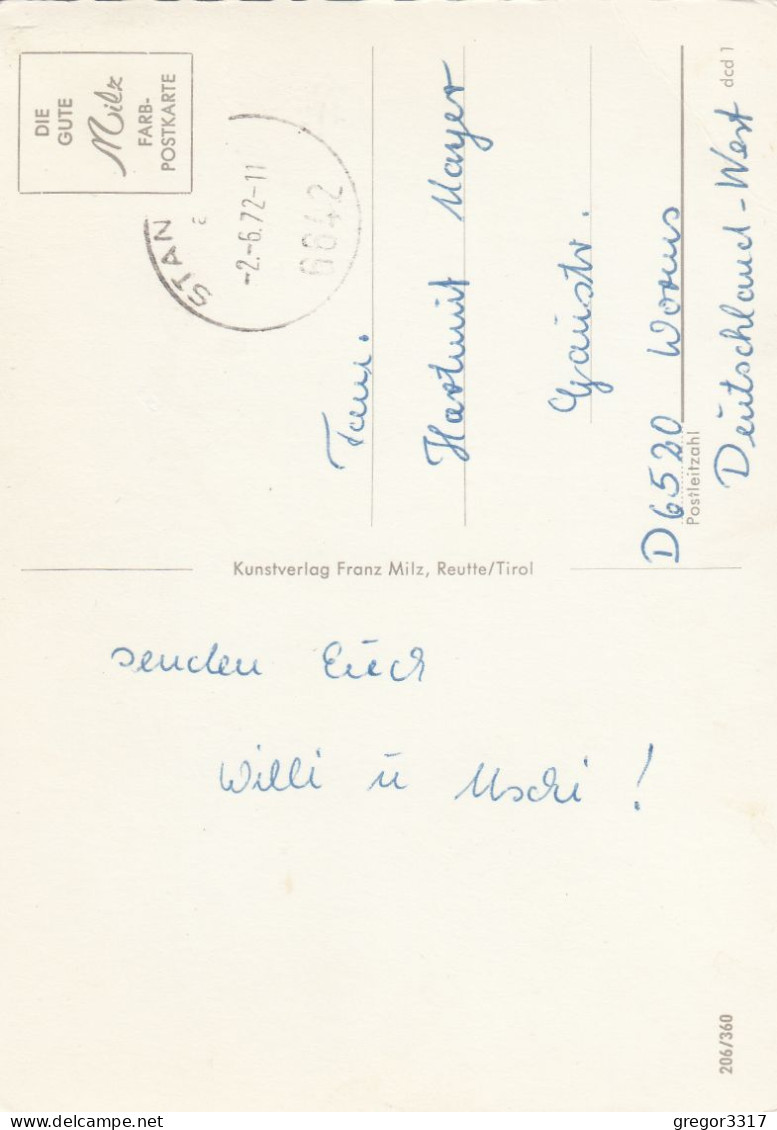 DIE
GUTE
Milz
FARB-
POSTKARTE
STAN
a
-2.-6.72-11
6842
Fam.
Hartmut Mayer
Gaustr.
D6520 Worms
Postleitzahl
Deutschland-West
dcd 1
Kunstverlag Franz Milz, Reutte/Tirol
senden Euch
Willi u Uschi !
206/360
www.delcampe.net
gregor3317